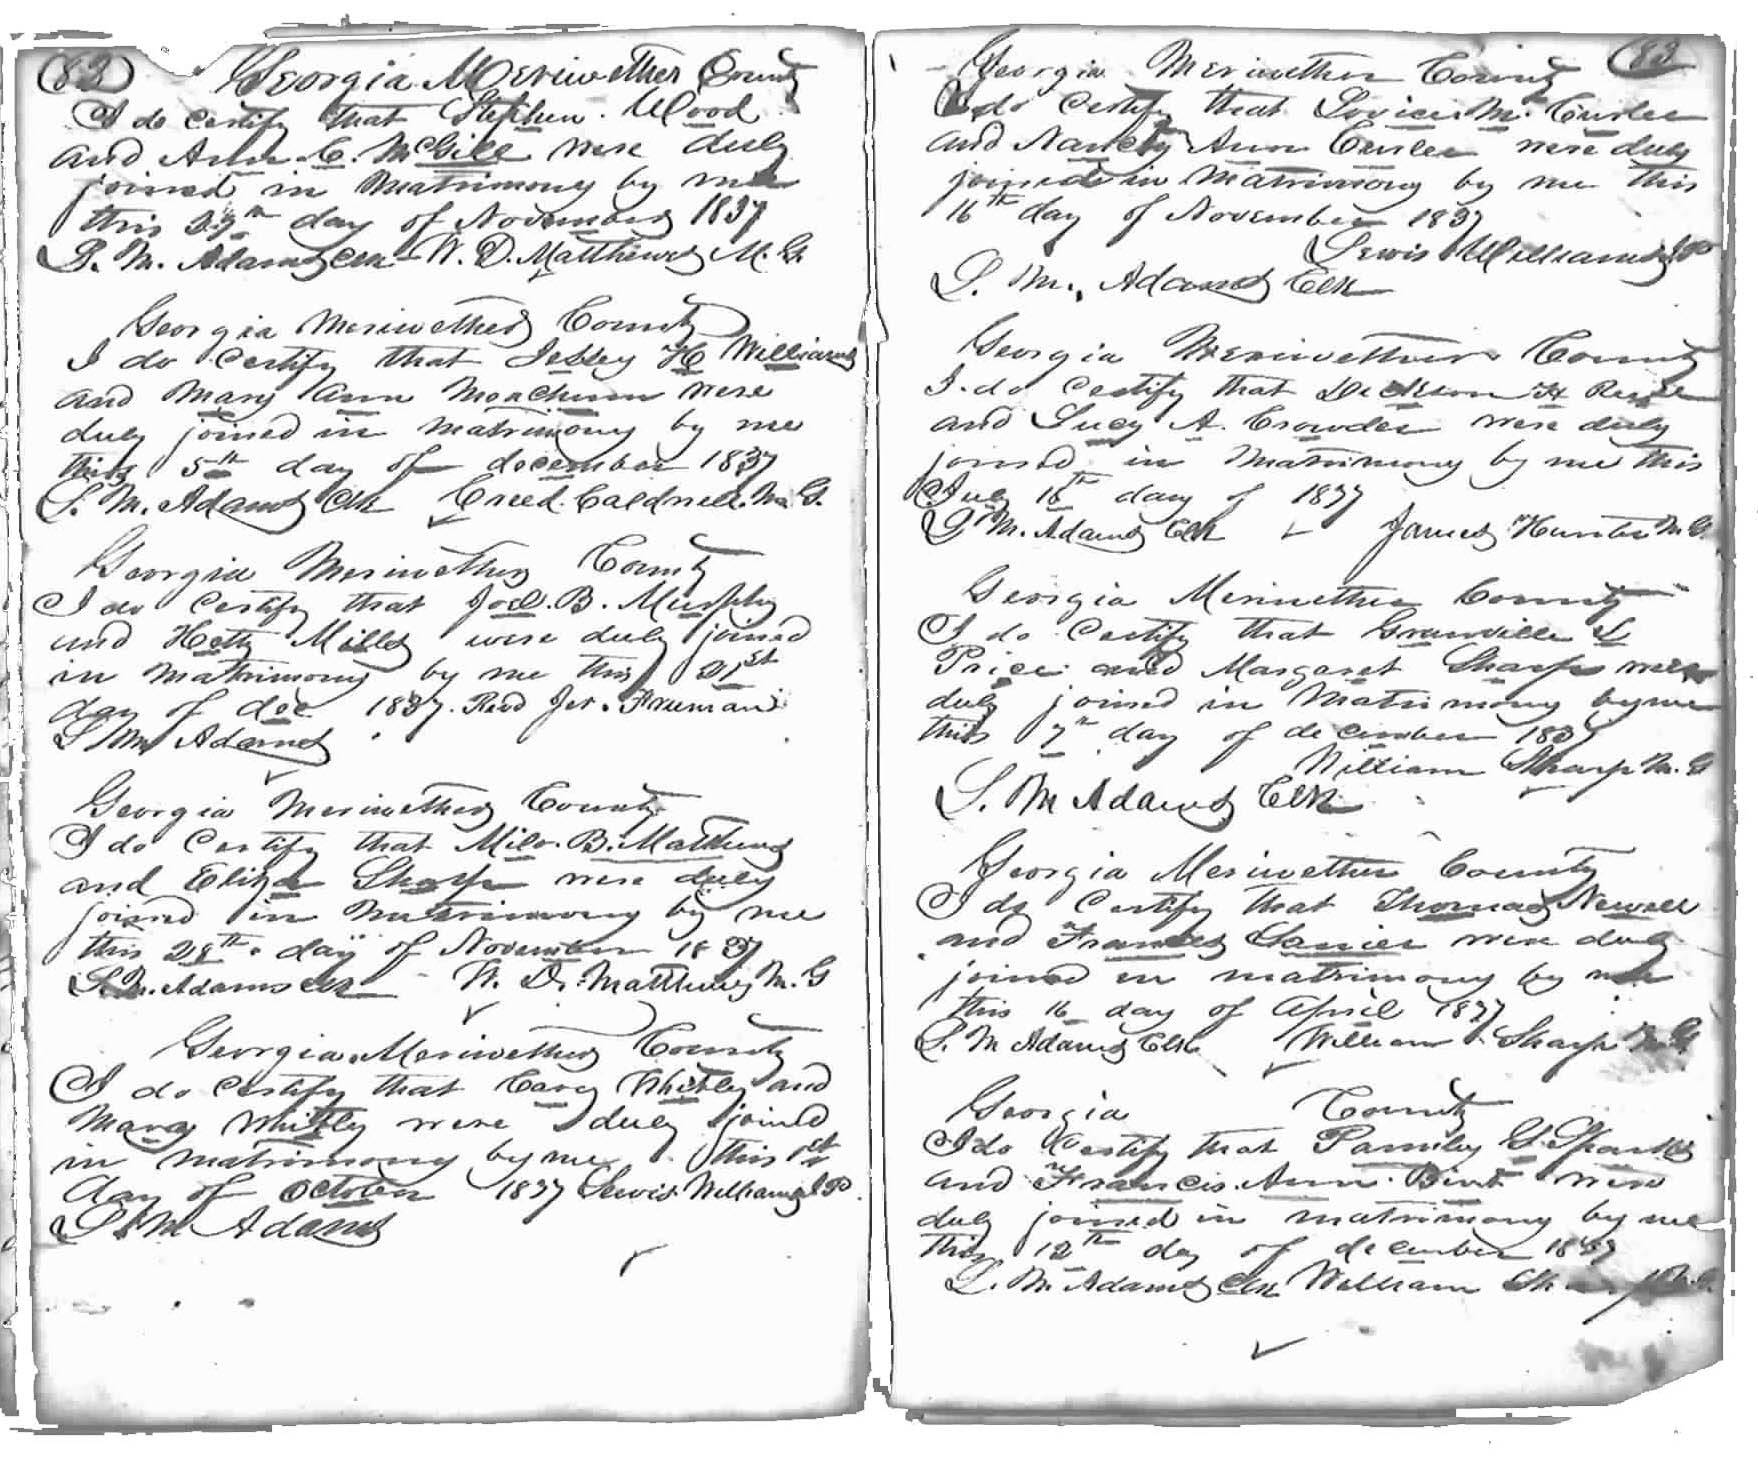 83
Georgia Meriwether County
I do certify that Stephen Wood
and Ann C. McGill were duly
joined in Matrimony by me
this day of November 1837
L. M. Adams Clk W. D. Matthews M. G.
Georgia Meriwether County
I do certify that Jessey H Williams
and Mary Ann were
duly joined in matrimony by me
this 5th day of december 1837
L. M. Adams Clk Creed Caldwell M. G.
Georgia Meriwether County
I do certify that Joel B. Murphy
and Hetty Mills were duly joined
in matrimony by me this 21st
day of dec 1837. Revd Jer. Freeman
L M Adams
Georgia Meriwether County
I do certify that Milo B. Matthews
and Eliza Sharp were duly
joined in Matrimony by me
this 28th day of November 1837
L. M. Adams Clk W. D. Matthews M. G
Georgia Meriwether County
I do certify that Cary Whitley and
Mary Whitley were duly joined
in matrimony by me this 1st
day of October 1837 Lewis Williams J P
L M Adams
83
Georgia Meriwether County
I do certify that M. Curlee
and Nancy Ann Curlee were duly
joined in Matrimony by me this
16th day of November 1837
Lewis Williams J P
L. M. Adams Clk
Georgia Meriwether County
I do certify that Dickson H
and Lucy A. Crowder were duly
joined in Matrimony by me this
July 18th day of 1837
L M. Adams Clk James Hunter M G.
Georgia Meriwether County
I do certify that Granville
Price and Margaret Sharp were
duly joined in Matrimony by me
this 7th day of december 1837
William Sharp M. G
L. M Adams Clk
Georgia Meriwether County
I do Certify that Thomas Newell
and Frances Lanier were duly
joined in matrimony by me
this 16 day of April 1837
L. M Adams Clk William Sharp M G.
Georgia County
I do Certify that G. Sparks
and Francis Ann were
duly joined in matrimony by me
this 12th day of december 1837
L. M. Adams Clk William Sharp